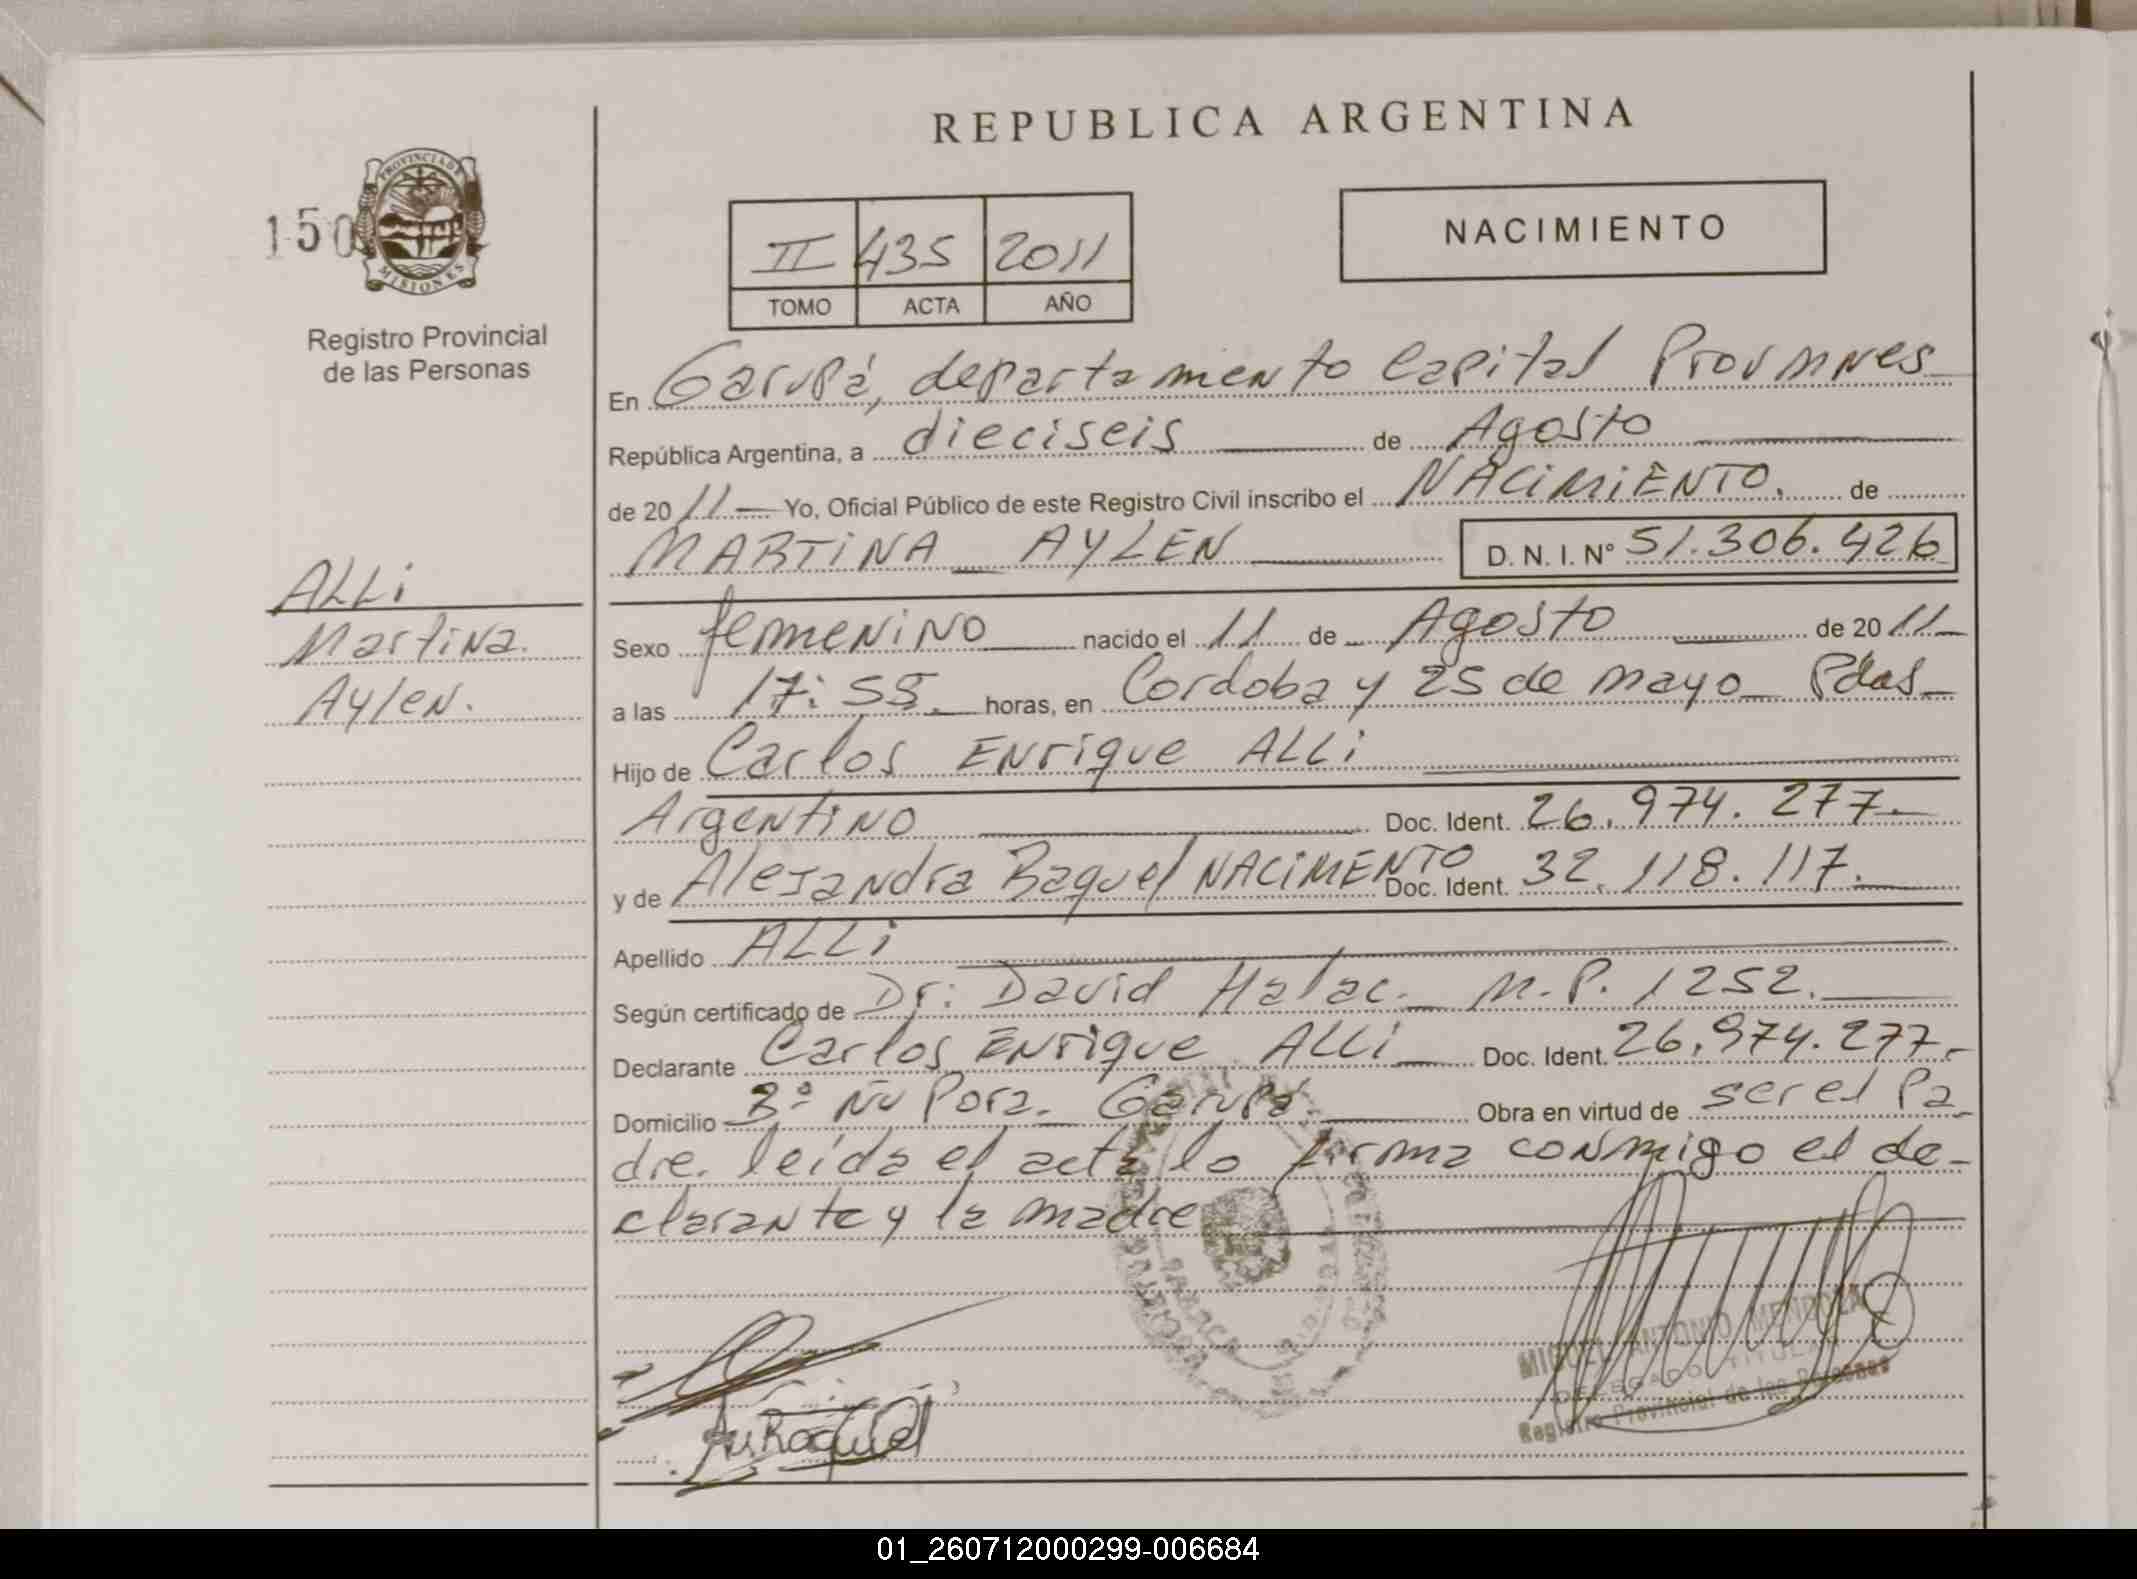 REPUBLICA ARGENTINA
150
PROVINCIA DE
MISIONES
Registro Provincial
de las Personas
II 435 2011
TOMO ACTA AÑO
NACIMIENTO
En Garupá, departamento Capital Prov Mnes
República Argentina, a dieciseis de Agosto
de 2011 Yo, Oficial Público de este Registro Civil inscribo el NACIMIENTO. de
MARTINA AYLEN D.N.I.Nº 51.306.426
ALLI
Martina.
Aylen.
Sexo femenino nacido el 11 de Agosto de 2011
a las 17:55. horas, en Cordoba y 25 de mayo Pdas
Hijo de Carlos Enrique ALLi
Argentino Doc. Ident. 26.974.277.
y de Alejandra Raquel NACIMENTO Doc. Ident. 32.118.117.
Apellido ALLi
Según certificado de Dr. David Halac. M.P. 1252.
Declarante Carlos Enrique ALLi Doc. Ident. 26.974.277.
Domicilio Bº Ñu Pora. Garupá. Obra en virtud de ser el Pa
dre. leida el acta lo firma conmigo el de-
clarante y la madre
Raquel
MIGUEL ANTONIO MENDOZA
DELEGADO TITULAR
Registro Provincial de las Personas
01_260712000299-006684